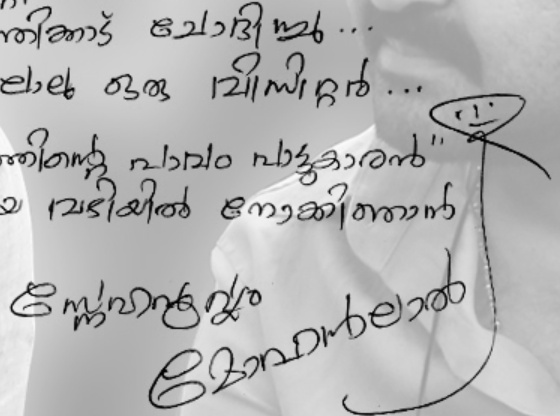 ന്തിക്കാട് ചോദിച്ചു ...
ലാലു ഒരു വിസിറ്റർ ...
ത്തിന്റെ പാവം പാട്ടുകാരൻ"
യ വഴിയിൽ നോക്കി ഞാൻ
സ്നേഹപൂർവ്വം
മോഹൻലാൽ